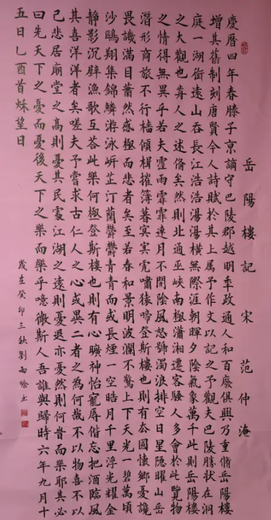 岳陽樓記 宋 范仲淹
慶曆四年春滕子京謫守巴陵郡越明年政通人和百廢俱興乃重脩岳陽樓
增其舊制刻唐賢今人詩賦於其上屬予作文以記之予觀夫巴陵勝狀在洞
庭一湖銜遠山吞長江浩浩湯湯橫無際涯朝暉夕陰氣象萬千此則岳陽樓
之大觀也前人之述備矣然則北通巫峽南極瀟湘遷客騷人多會於此覽物
之情得無異乎若夫霪雨霏霏連月不開陰風怒號濁浪排空日星隱曜山岳
潛形商旅不行檣傾楫摧薄暮冥冥虎嘯猿啼登斯樓也則有去國懷鄉憂讒
畏譏滿目蕭然感極而悲者矣至若春和景明波瀾不驚上下天光一碧萬頃
沙鷗翔集錦鱗游泳岸芷汀蘭鬱鬱青青而或長煙一空皓月千里浮光耀金
靜影沉璧漁歌互答此樂何極登斯樓也則有心曠神怡寵辱偕忘把酒臨風
其喜洋洋者矣嗟夫予嘗求古仁人之心或異二者之為何哉不以物喜不以
己悲居廟堂之高則憂其民處江湖之遠則憂退亦憂然則何時而樂耶其必
曰先天下之憂而憂後天下之樂而樂乎噫微斯人吾誰與歸時六年九月十
五日乙酉首秋望日
歲在癸卯三秋劉雨